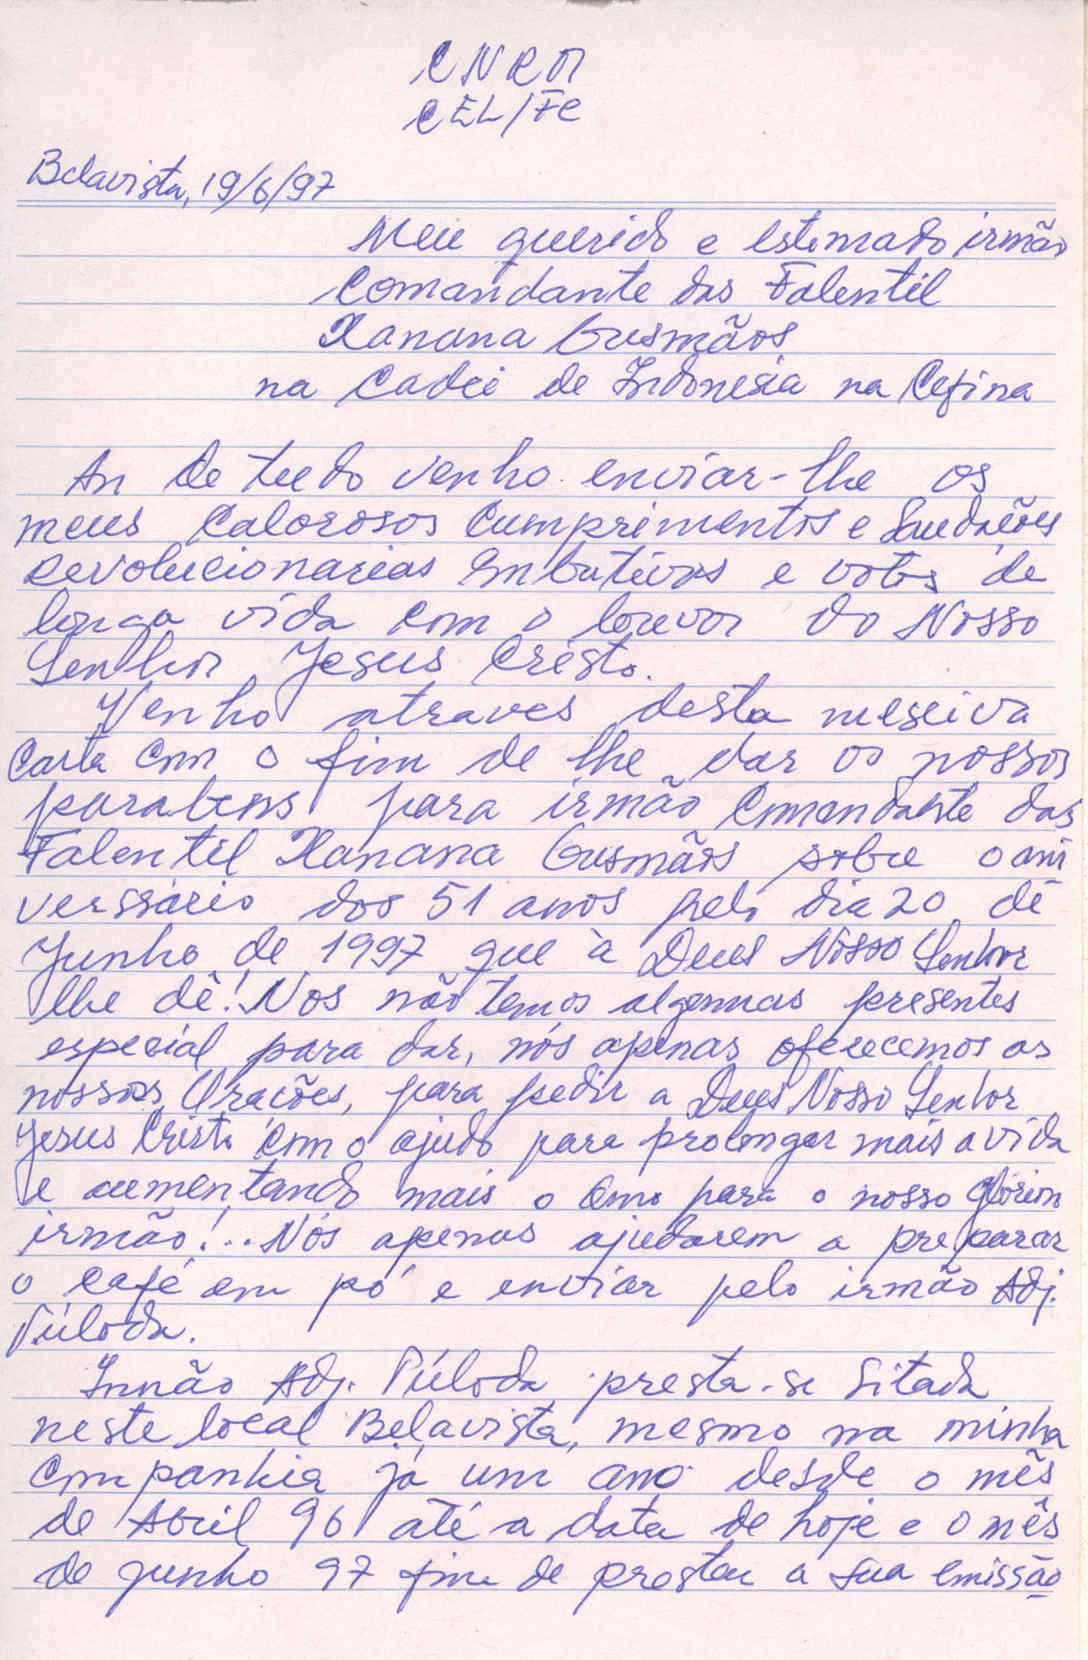 CNRM
CEL/FC
Belavista, 19/6/97
Meu querido e estimado irmão
Comandante das Falentil
Xanana Gusmãos
na Cadei de Indonesia na
An de tudo venho enviar-lhe os
meus Calorosos Cumprimentos e Saudações
revolucionarias e votos de
longa vida com o louvor do Nosso
Senhor Jesus Cristo.
Venho atraves desta messiva
Carta com o fim de lhe dar os nossos
parabens para irmão Comandante das
Falentil Xanana Gusmãos sobre o ani
verssário dos 51 anos pelo dia 20 de
Junho de 1997 que à Deus Nosso Senhor
lhe dê! Nos não temos algumas presentes
especial para dar, nós apenas oferecemos as
nossos Orações, para pedir a Deus Nosso Senhor
Jesus Cristo com o ajudo para prolongar mais a vida
e aumentando mais o para o nosso
irmão!.. Nós apenas ajudarem a preparar
o café em pó e enviar pelo irmão Adj.
Piíloda.
Irmão Adj. Piíloda presta-se Sitada
neste local Belavista, mesmo na minha
Companhia já um ano desde o mês
de Abril 96 até a data de hoje e o mês
de junho 97 fim de prestar a sua emissão